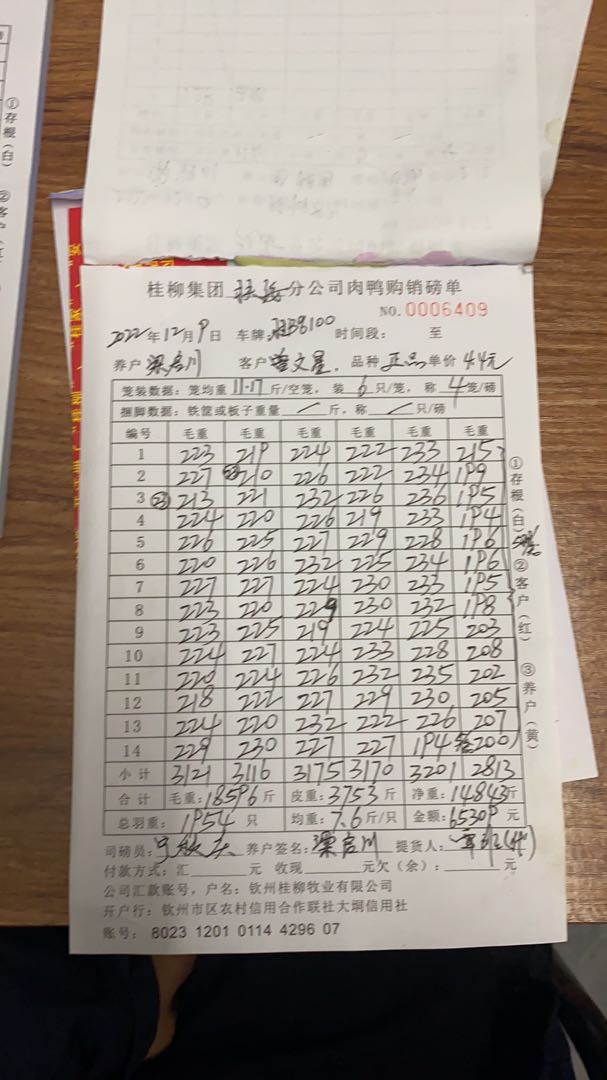 ①存根(白) ②客
桂柳集团 分公司肉鸭购销磅单
NO.0006409
2022年12月9日 车牌: 38100 时间段: 至
养户 梁启川 客户 文星 品种 正品 单价 4.4元
笼装数据: 笼均重 11.17 斤/空笼, 装 6 只/笼, 称 4 笼/磅
捆脚数据: 铁筐或板子重量 / 斤, 称 / 只/磅
编号 毛重 毛重 毛重 毛重 毛重 毛重
1 223 219 224 222 233 215
2 227 210 226 222 234 199
3 213 221 232 226 236 195
4 224 220 226 219 233 194
5 226 225 227 229 228 196
6 220 226 232 225 234 196
7 227 227 224 230 233 195
8 223 220 229 230 232 198
9 223 225 219 224 225 203
10 224 227 224 233 228 208
11 220 224 226 232 235 202
12 218 222 227 229 230 205
13 224 220 232 222 226 207
14 229 230 227 227 194 200
小计 3121 3116 3175 3170 3201 2813
合计 毛重: 18596 斤 皮重: 3753 斤 净重: 14843 斤
总羽重: 1954 只 均重: 7.6 斤/只 金额: 65309 元
司磅员: 养户签名: 梁启川 提货人:
付款方式: 汇 元 收现 元欠(余): 元
公司汇款账号, 户名: 钦州桂柳牧业有限公司
开户行: 钦州市区农村信用合作联社大垌信用社
账号: 8023 1201 0114 4296 07
①存根(白) ②客户(红) ③养户(黄)